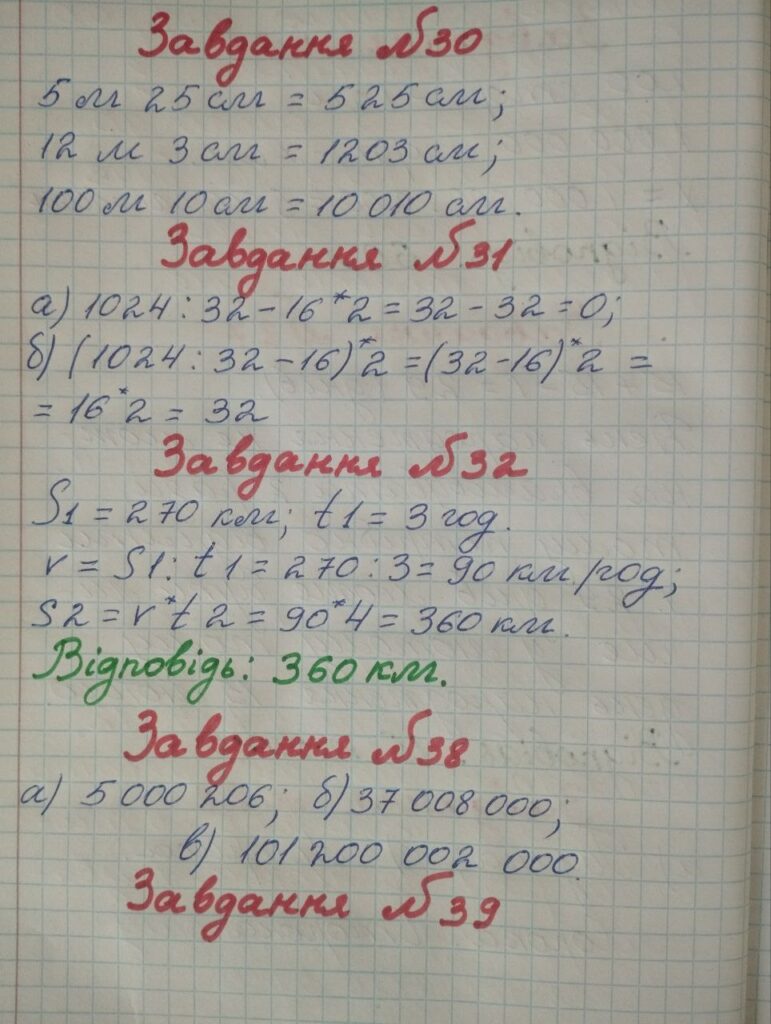 Завдання №30
5 м 25 см = 525 см;
12 м 3 см = 1203 см;
100 м 10 см = 10 010 см.
Завдання №31
а) 1024 : 32 - 16 * 2 = 32 - 32 = 0;
б) (1024 : 32 - 16) * 2 = (32 - 16) * 2 =
= 16 * 2 = 32
Завдання №32
S1 = 270 км; t1 = 3 год.
v = S1 : t1 = 270 : 3 = 90 км/год;
S2 = v * t2 = 90 * 4 = 360 км.
Відповідь: 360 км.
Завдання №38
а) 5 000 206; б) 37 008 000;
в) 101 200 002 000.
Завдання №39